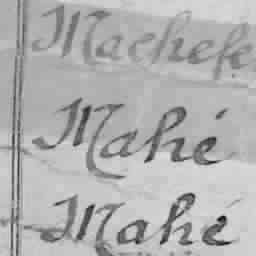 Machefe
Mahé
Mahé